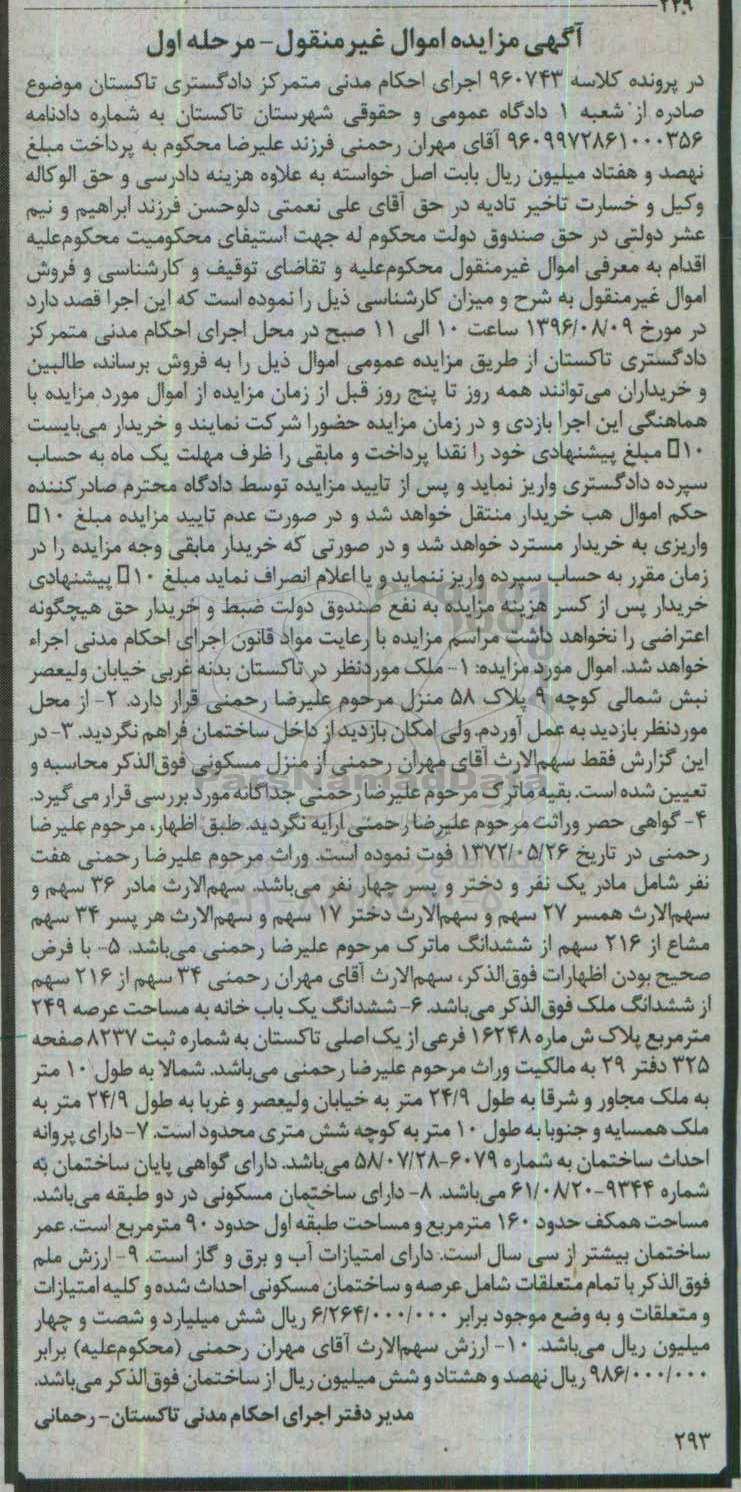 ۲۲۹
آگهی مزایده اموال غیرمنقول- مرحله اول
در پرونده کلاسه ۹۶۰۷۴۳ اجرای احکام مدنی متمرکز دادگستری تاکستان موضوع
صادره از شعبه ۱ دادگاه عمومی و حقوقی شهرستان تاکستان به شماره دادنامه
۹۶۰۹۹۷۲۸۶۱۰۰۰۳۵۶ آقای مهران رحمنی فرزند علیرضا محکوم به پرداخت مبلغ
نهصد و هفتاد میلیون ریال بابت اصل خواسته به علاوه هزینه دادرسی و حق الوکاله
وکیل و خسارت تاخیر تادیه در حق آقای علی نعمتی دلوحسن فرزند ابراهیم و نیم
عشر دولتی در حق صندوق دولت محکوم له جهت استیفای محکومیت محکوم‌علیه
اقدام به معرفی اموال غیرمنقول محکوم‌علیه و تقاضای توقیف و کارشناسی و فروش
اموال غیرمنقول به شرح و میزان کارشناسی ذیل را نموده است که این اجرا قصد دارد
در مورخ ۱۳۹۶/۰۸/۰۹ ساعت ۱۰ الی ۱۱ صبح در محل اجرای احکام مدنی متمرکز
دادگستری تاکستان از طریق مزایده عمومی اموال ذیل را به فروش برساند، طالبین
و خریداران می‌توانند همه روز تا پنج روز قبل از زمان مزایده از اموال مورد مزایده با
هماهنگی این اجرا بازدی و در زمان مزایده حضورا شرکت نمایند و خریدار می‌بایست
۱۰▯ مبلغ پیشنهادی خود را نقدا پرداخت و مابقی را ظرف مهلت یک ماه به حساب
سپرده دادگستری واریز نماید و پس از تایید مزایده توسط دادگاه محترم صادرکننده
حکم اموال هب خریدار منتقل خواهد شد و در صورت عدم تایید مزایده مبلغ ۱۰▯
واریزی به خریدار مسترد خواهد شد و در صورتی که خریدار مابقی وجه مزایده را در
زمان مقرر به حساب سپرده واریز ننماید و یا اعلام انصراف نماید مبلغ ۱۰▯ پیشنهادی
خریدار پس از کسر هزینه مزایده به نفع صندوق دولت ضبط و خریدار حق هیچگونه
اعتراضی را نخواهد داشت مراسم مزایده با رعایت مواد قانون اجرای احکام مدنی اجراء
خواهد شد. اموال مورد مزایده: ۱- ملک موردنظر در تاکستان بدنه غربی خیابان ولیعصر
نبش شمالی کوچه ۹ پلاک ۵۸ منزل مرحوم علیرضا رحمنی قرار دارد. ۲- از محل
موردنظر بازدید به عمل آوردم. ولی امکان بازدید از داخل ساختمان فراهم نگردید. ۳- در
این گزارش فقط سهم‌الارث آقای مهران رحمنی از منزل مسکونی فوق‌الذکر محاسبه و
تعیین شده است. بقیه ماترک مرحوم علیرضا رحمنی جداگانه مورد بررسی قرار می‌گیرد.
۴- گواهی حصر وراثت مرحوم علیرضا رحمنی ارایه نگردید. طبق اظهار، مرحوم علیرضا
رحمنی در تاریخ ۱۳۷۲/۰۵/۲۶ فوت نموده است. وراث مرحوم علیرضا رحمنی هفت
نفر شامل مادر یک نفر و دختر و پسر چهار نفر می‌باشد. سهم‌الارث مادر ۳۶ سهم و
سهم‌الارث همسر ۲۷ سهم و سهم‌الارث دختر ۱۷ سهم و سهم‌الارث هر پسر ۳۴ سهم
مشاع از ۲۱۶ سهم از ششدانگ ماترک مرحوم علیرضا رحمنی می‌باشد. ۵- با فرض
صحیح بودن اظهارات فوق‌الذکر، سهم‌الارث آقای مهران رحمنی ۳۴ سهم از ۲۱۶ سهم
از ششدانگ ملک فوق‌الذکر می‌باشد. ۶- ششدانگ یک باب خانه به مساحت عرصه ۲۴۹
مترمربع پلاک ش ماره ۱۶۲۴۸ فرعی از یک اصلی تاکستان به شماره ثبت ۸۲۳۷ صفحه
۳۲۵ دفتر ۲۹ به مالکیت وراث مرحوم علیرضا رحمنی می‌باشد. شمالا به طول ۱۰ متر
به ملک مجاور و شرقا به طول ۲۴/۹ متر به خیابان ولیعصر و غربا به طول ۲۴/۹ متر به
ملک همسایه و جنوبا به طول ۱۰ متر به کوچه شش متری محدود است. ۷- دارای پروانه
احداث ساختمان به شماره ۶۰۷۹-۵۸/۰۷/۲۸ می‌باشد. دارای گواهی پایان ساختمان به
شماره ۹۳۴۴-۶۱/۰۸/۲۰ می‌باشد. ۸- دارای ساختمان مسکونی در دو طبقه می‌باشد.
مساحت همکف حدود ۱۶۰ مترمربع و مساحت طبقه اول حدود ۹۰ مترمربع است. عمر
ساختمان بیشتر از سی سال است. دارای امتیازات آب و برق و گاز است. ۹- ارزش ملم
فوق‌الذکر با تمام متعلقات شامل عرصه و ساختمان مسکونی احداث شده و کلیه امتیازات
و متعلقات و به وضع موجود برابر ۶/۲۶۴/۰۰۰/۰۰۰ ریال شش میلیارد و شصت و چهار
میلیون ریال می‌باشد. ۱۰- ارزش سهم‌الارث آقای مهران رحمنی (محکوم‌علیه) برابر
۹۸۶/۰۰۰/۰۰۰ ریال نهصد و هشتاد و شش میلیون ریال از ساختمان فوق‌الذکر می‌باشد.
مدیر دفتر اجرای احکام مدنی تاکستان- رحمانی
۲۹۳